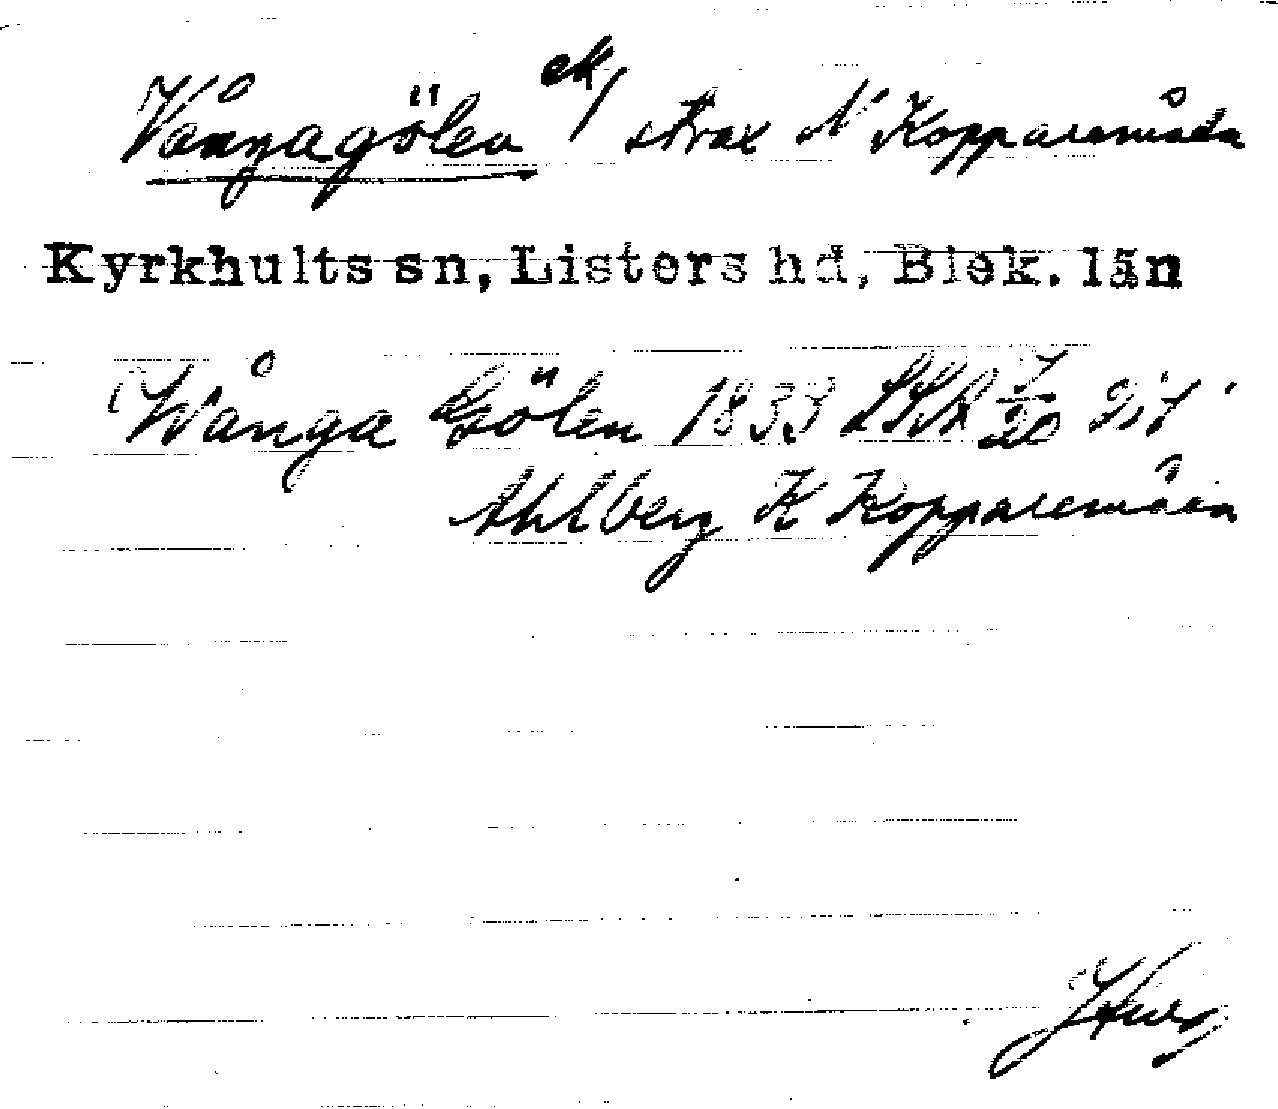 Vångagölen ek/ strax N Kopparemåla
Kyrkhults sn, Listers hd, Blek. län
Wånga Gölen 1833 LSK 7/20
Ahlberg K Kopparemåla